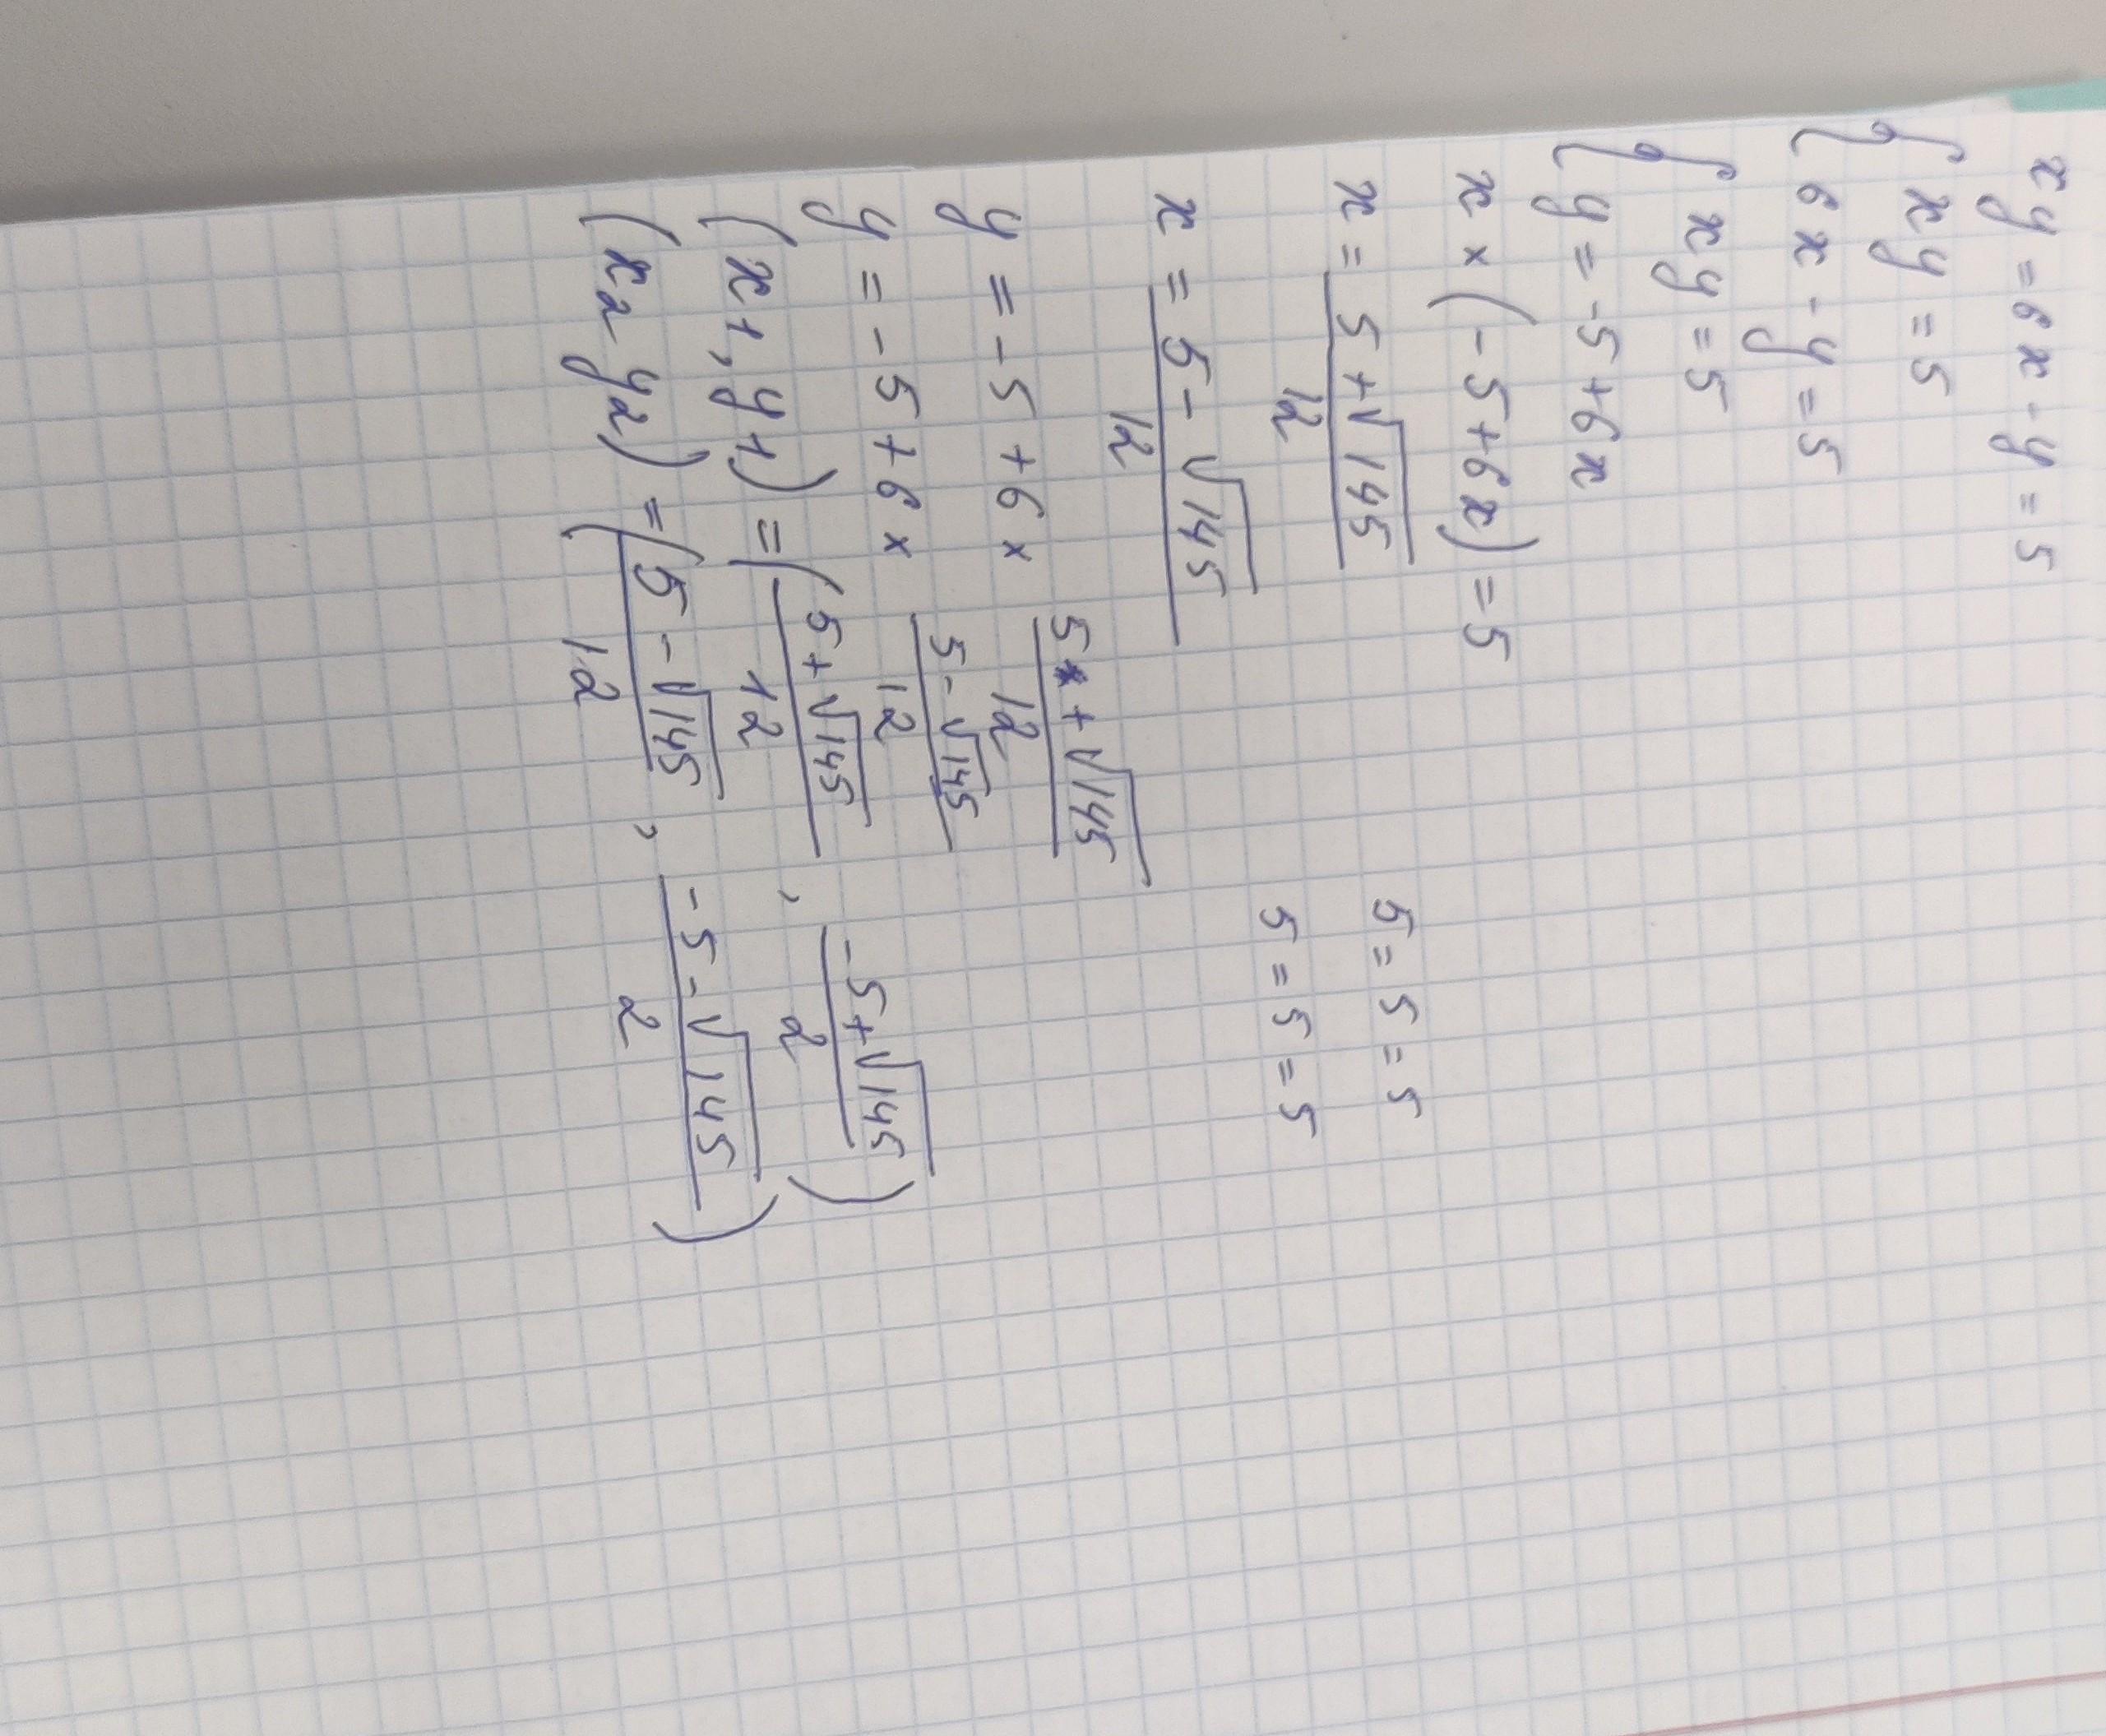 xy = 6x - y = 5
{ xy = 5
{ 6x - y = 5
{ xy = 5
{ y = -5 + 6x
x × (-5 + 6x) = 5
x = (5 + √145)/12
5 = 5 = 5
x = (5 - √145)/12
5 = 5 = 5
y = -5 + 6 × (5 + √145)/12
y = -5 + 6 × (5 - √145)/12
(x1, y1) = ((5 + √145)/12, (-5 + √145)/2)
(x2 y2) = ((5 - √145)/12, (-5 - √145)/2)